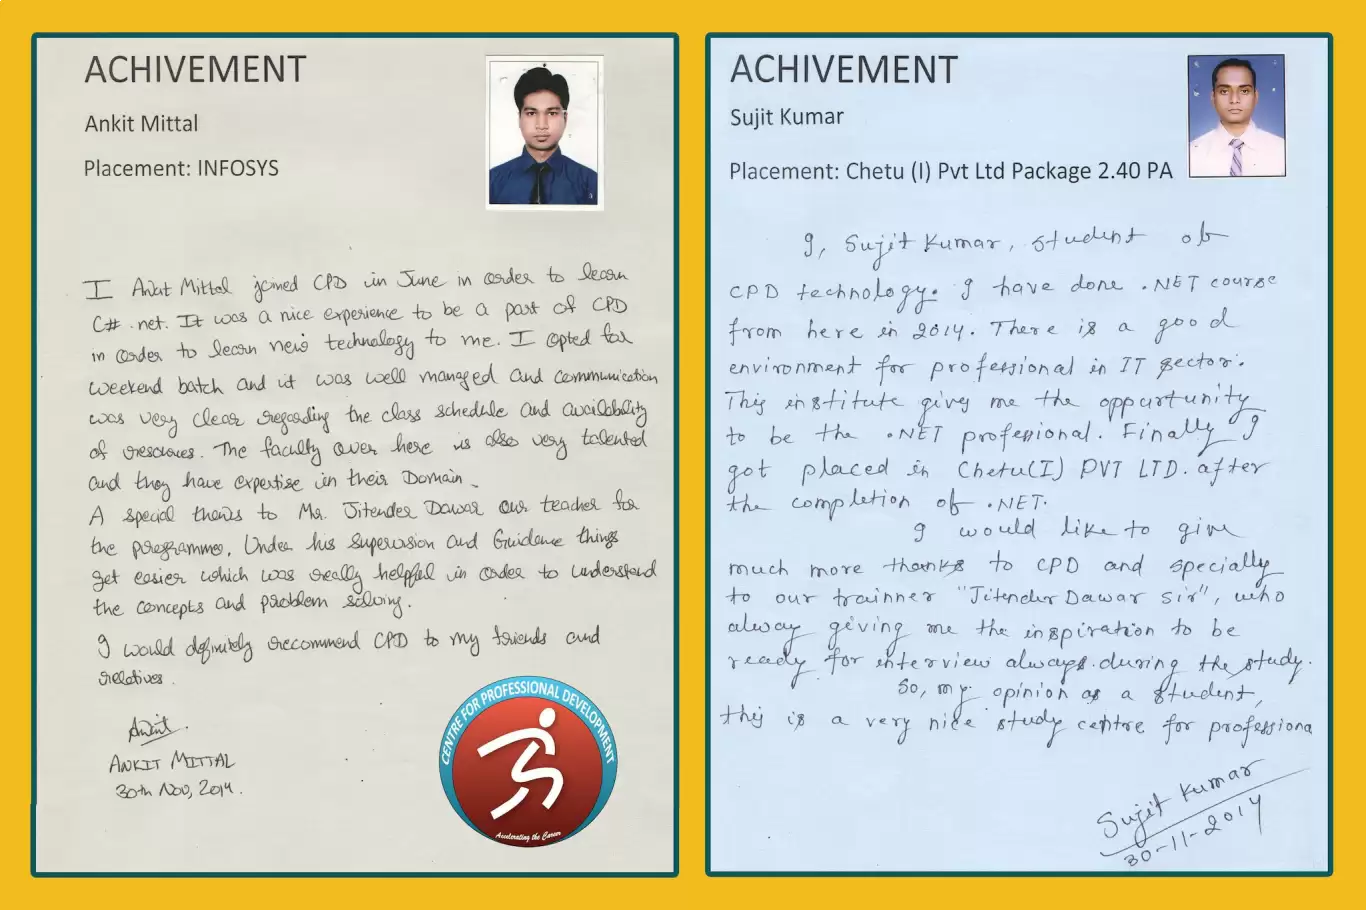 ACHIVEMENT
Ankit Mittal
Placement: INFOSYS
I Ankit Mittal joined CPD in June in order to learn
C# .net. It was a nice experience to be a part of CPD
in order to learn new technology to me. I opted for
weekend batch and it was well managed and communication
was very clear regarding the class schedule and availability
of resources. The faculty over here is also very talented
and they have expertise in their Domain.
A special thanks to Mr. Jitender Dawar our teacher for
the programme. Under his supervision and Guidance things
get easier which was really helpful in order to understand
the concepts and problem solving.
I would definitely recommend CPD to my friends and
relatives.
Ankit
ANKIT MITTAL
30th Nov, 2014.
CENTRE FOR PROFESSIONAL DEVELOPMENT
Accelerating the Career
ACHIVEMENT
Sujit Kumar
Placement: Chetu (I) Pvt Ltd Package 2.40 PA
I, Sujit Kumar, student of
CPD technology. I have done .NET course
from here in 2014. There is a good
environment for professional in IT sector.
This institute givy me the oppurtunity
to be the .NET professional. Finally I
got placed in Chetu(I) PVT LTD. after
the completion of .NET.
I would like to give
much more thanks to CPD and specially
to our trainner "Jitender Dawar sir", who
alway giving me the inspiration to be
ready for interview always during the study.
So, my opinion as a student,
this is a very nice study centre for professiona
Sujit Kumar
30-11-2014